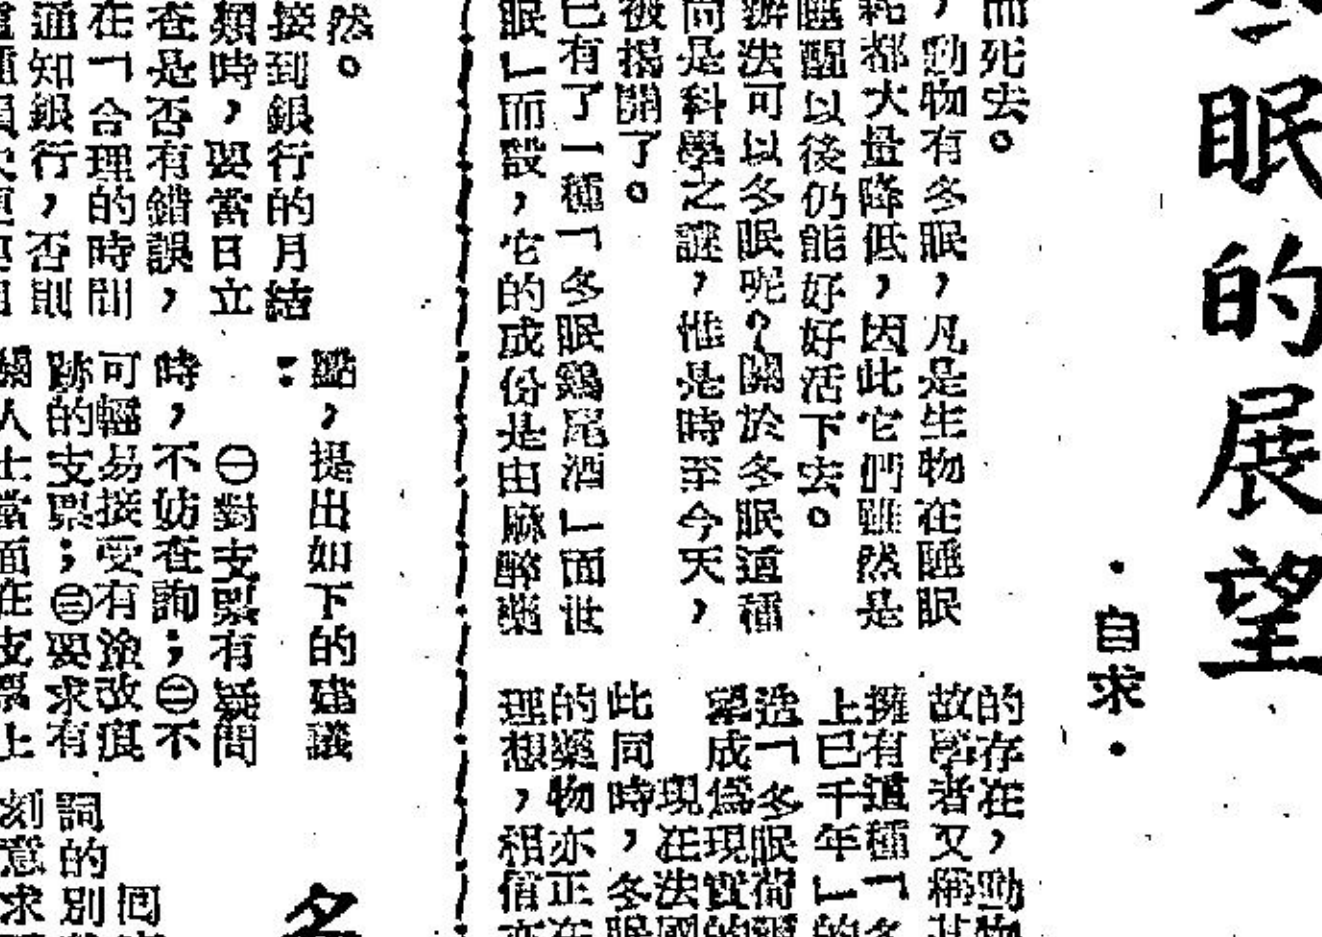 冬眠的展望
·自求·
而死去。
，動物有冬眠，凡是生物在睡眠
點都大量降低，因此它們雖然是
睡醒以後仍能好好活下去。
辦法可以冬眠呢？關於冬眠這種
而是科學之謎，惟是時至今天，
被揭開了。
已有了一種「冬眠鷄尾酒」面世
眠」而設，它的成份是由麻醉藥
的存在，動物
故學者又稱其
擁有這種「冬
上已千年」的
造「冬眠荷爾
望成爲現實的
現在法國
此同時，冬眠
的藥物亦正在
理想，相信亦
然。
接到銀行的月結
類時，要當日立
查是否有錯誤，
在「合理的時間
通知銀行，否則
點，提出如下的建議
：
㊀對支票有疑問
時，不妨查詢；㊁不
可輕易接受有塗改痕
跡的支票；㊂要求有
關人士當面在支票上
詞的別
刻意求
名